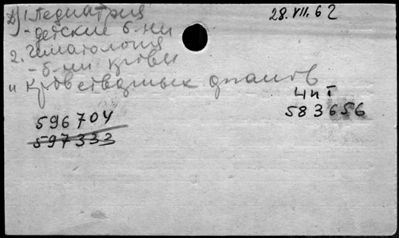 1. Педиатрия
28.VII.62
- детские б-ни
2. Гематология
- б-ни крови
и кроветворных органов
4 п I
596704
583656
597333